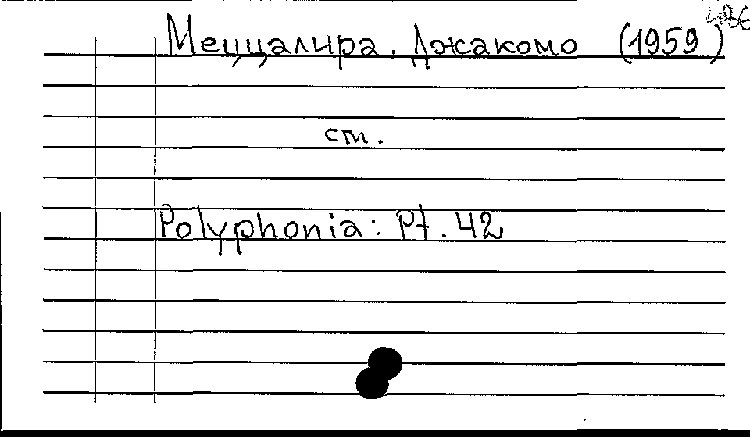 Меццалира. Джакомо (1959)
ст.
Polyphonia: Pt. 42